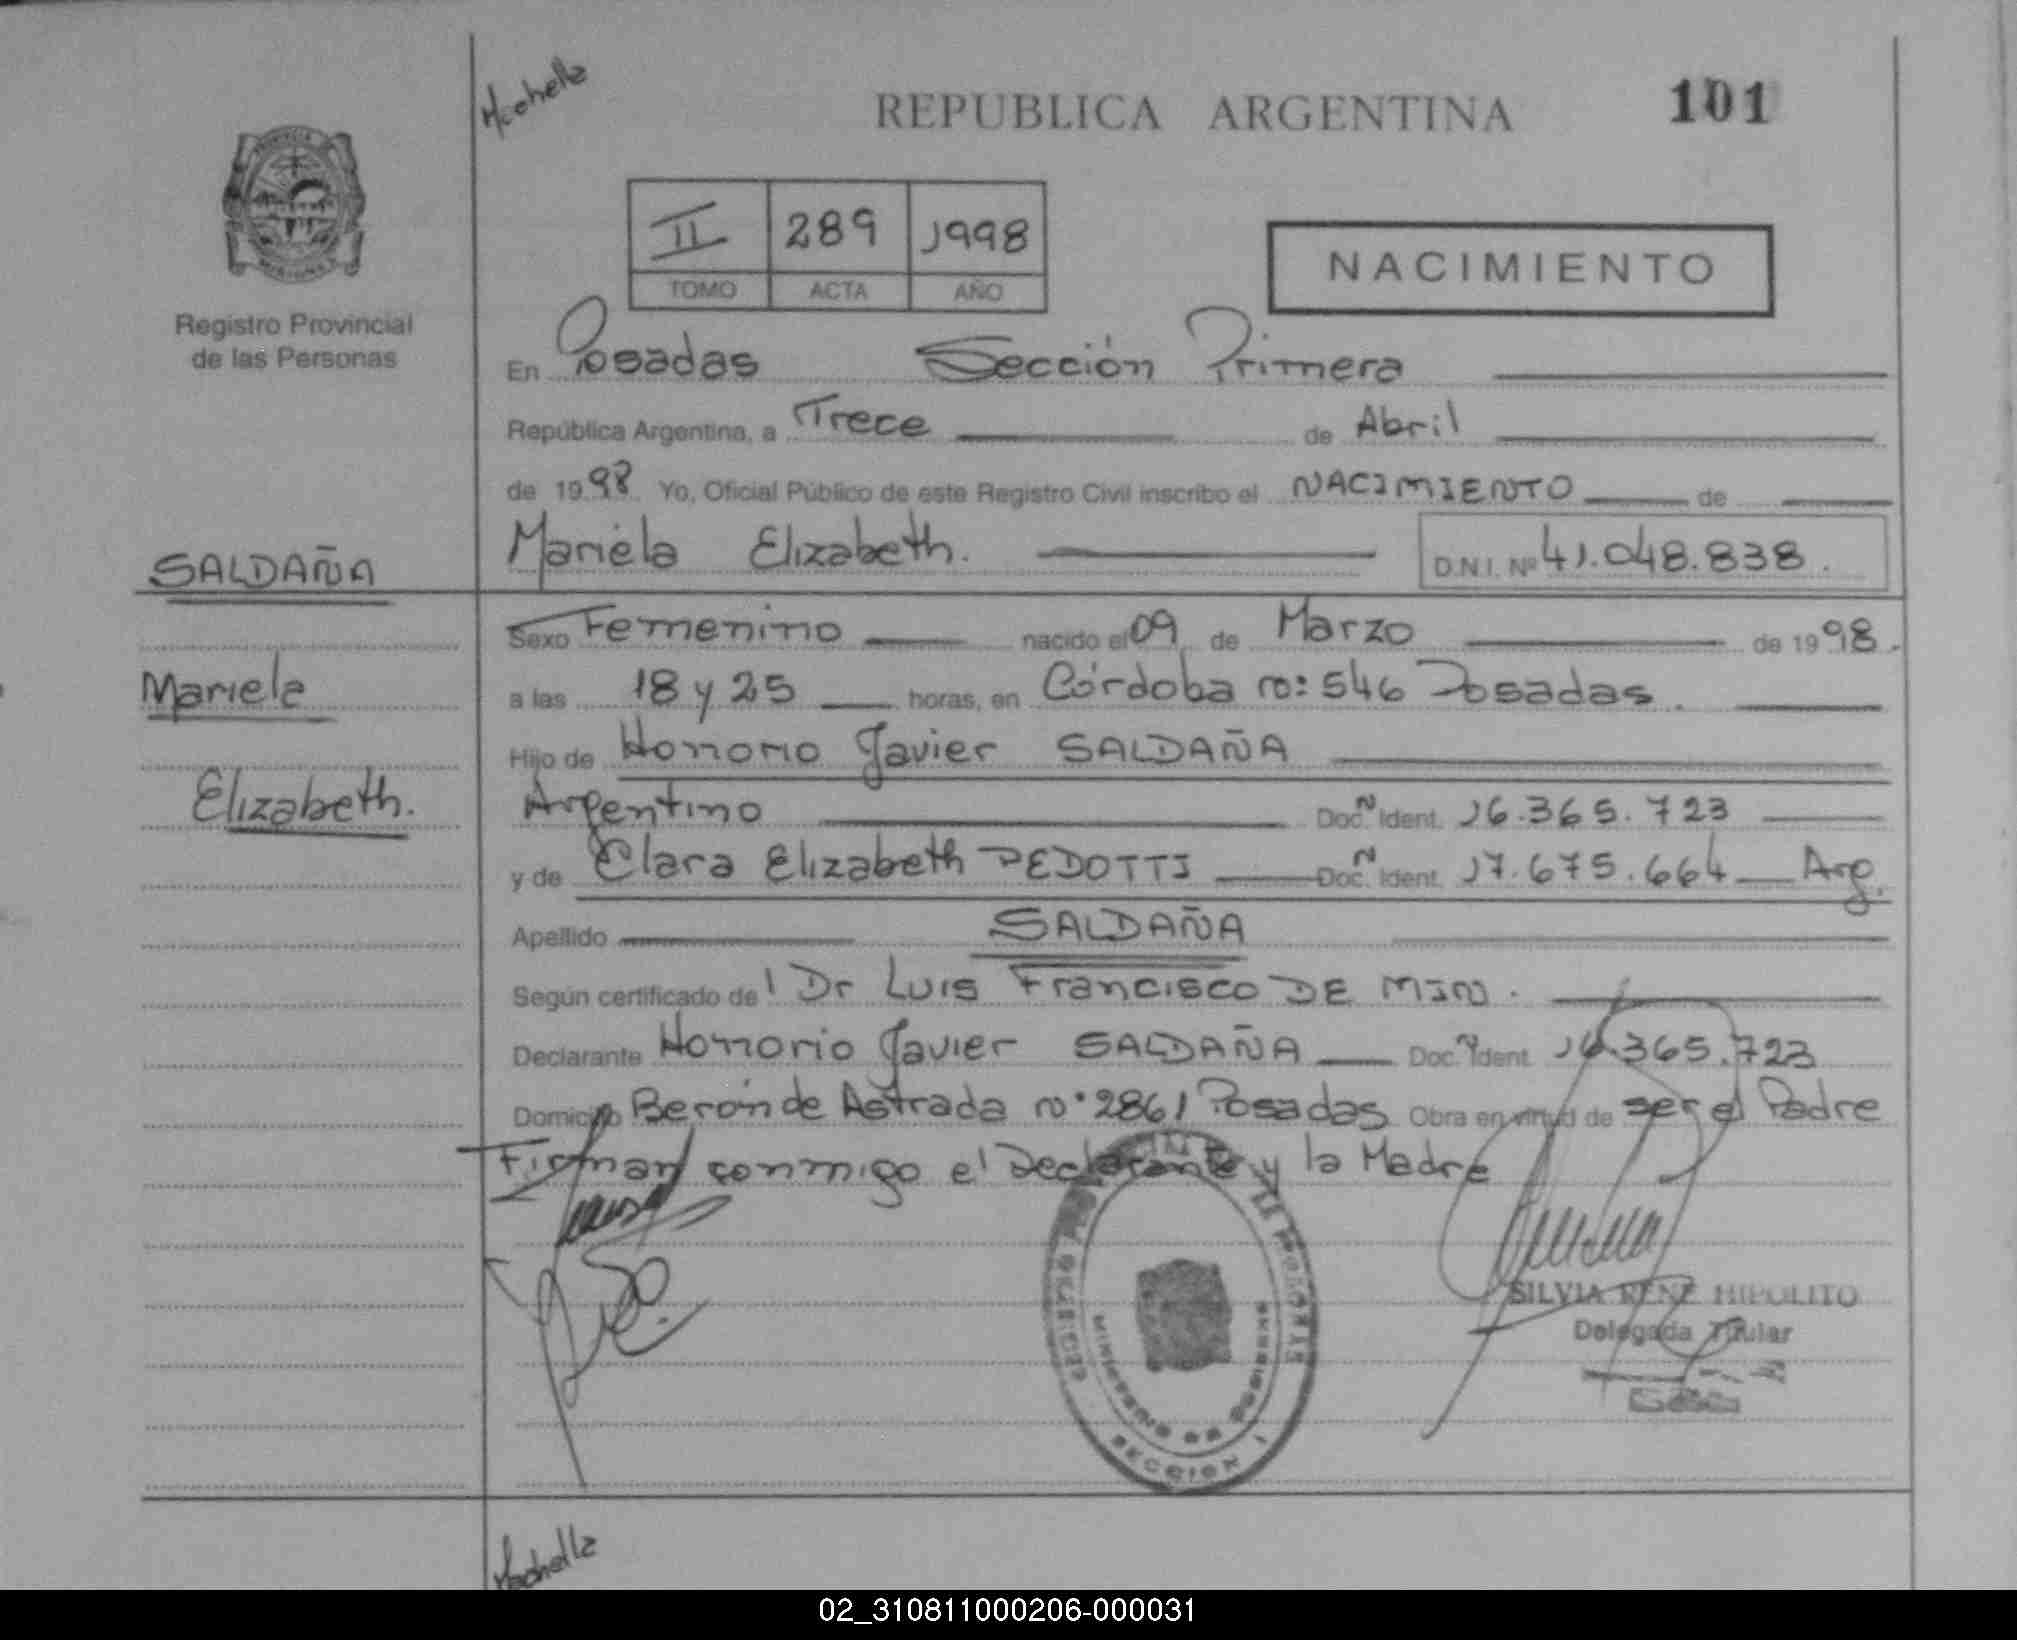 REPUBLICA ARGENTINA
101
II 289 1998
TOMO ACTA AÑO
NACIMIENTO
Registro Provincial
de las Personas
En Posadas Sección Primera
República Argentina, a Trece de Abril
de 1998 Yo, Oficial Público de este Registro Civil inscribo el NACIMIENTO de
Mariela Elizabeth. D.N.I. Nº 41.048.838.
SALDAÑA
Mariela
Elizabeth.
Sexo Femenino nacido el 09 de Marzo de 1998.
a las 18 y 25 horas, en Córdoba no: 546 Posadas.
Hijo de Honorio Javier SALDAÑA
Argentino Doc. Ident. 16.365.723
y de Clara Elizabeth PEDOTTI Doc. Ident. 17.675.664 Arg.
Apellido SALDAÑA
Según certificado del Dr Luis Francisco DE MIN.
Declarante Honorio Javier SALDAÑA Doc. Ident. 16.365.723
Domicilio Berón de Astrada nº 2861 Posadas Obra en virtud de ser el Padre
Firman conmigo el Declarante y la Madre
MINISTERIO DE GOBIERNO
SECCION I
SILVIA RENE HIPOLITO
Delegada Titular
02_310811000206-000031